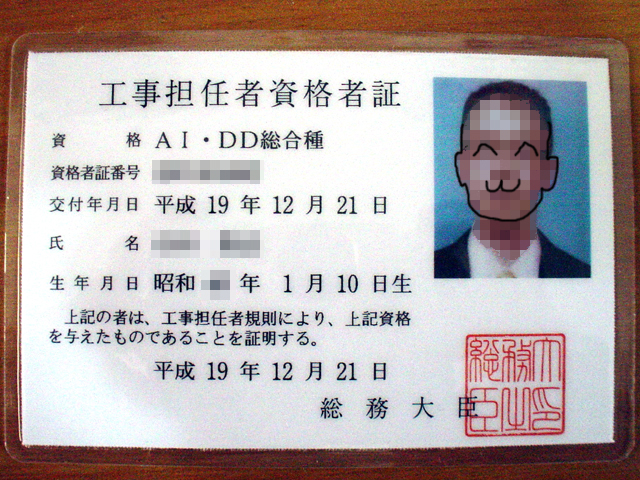 工事担任者資格者証
資 格 ＡＩ・ＤＤ総合種
資格者証番号
交付年月日 平成 19 年 12 月 21 日
氏 名
生年月日 昭和 年 1 月 10 日生
上記の者は、工事担任者規則により、上記資格
を与えたものであることを証明する。
平成 19 年 12 月 21 日
総 務 大 臣
総務大臣之印